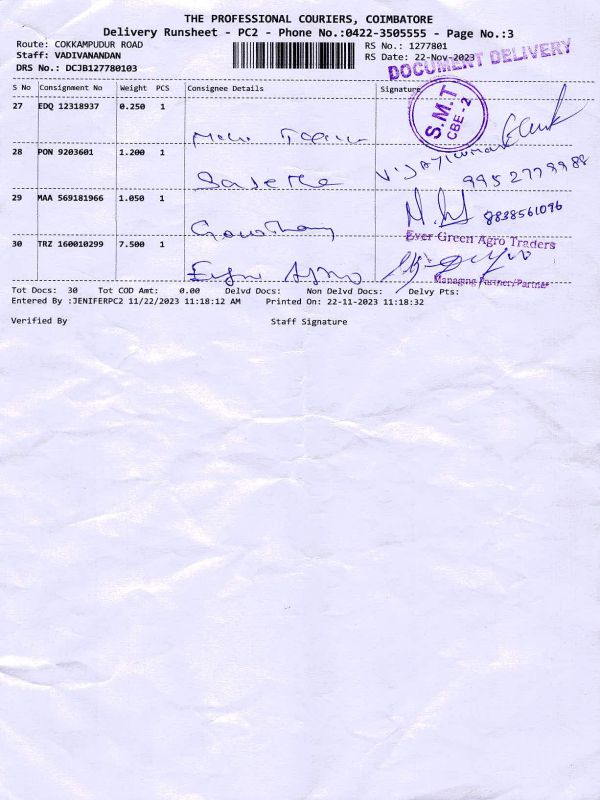 THE PROFESSIONAL COURIERS, COIMBATORE
Delivery Runsheet - PC2 - Phone No.:0422-3505555 - Page No.:3
Route: COKKAMPUDUR ROAD
Staff: VADIVANANDAN
DRS No.: DCJB127780103
RS No.: 1277801
RS Date: 22-Nov-2023
DOCUMENT DELIVERY
S No Consignment No Weight PCS Consignee Details Signature
S.M.T
CBE - 2
27 EDQ 12318937 0.250 1
28 PON 9203601 1.200 1
Vijaykumar
995 2779988
29 MAA 569181966 1.050 1
8838561096
Gowtham
Ever Green Agro Traders
30 TRZ 160010299 7.500 1
Agro
Managing Partner/Partner
Tot Docs: 30 Tot COD Amt: 0.00 Delvd Docs: Non Delvd Docs: Delvy Pts:
Entered By :JENIFERPC2 11/22/2023 11:18:12 AM Printed On: 22-11-2023 11:18:32
Verified By Staff Signature